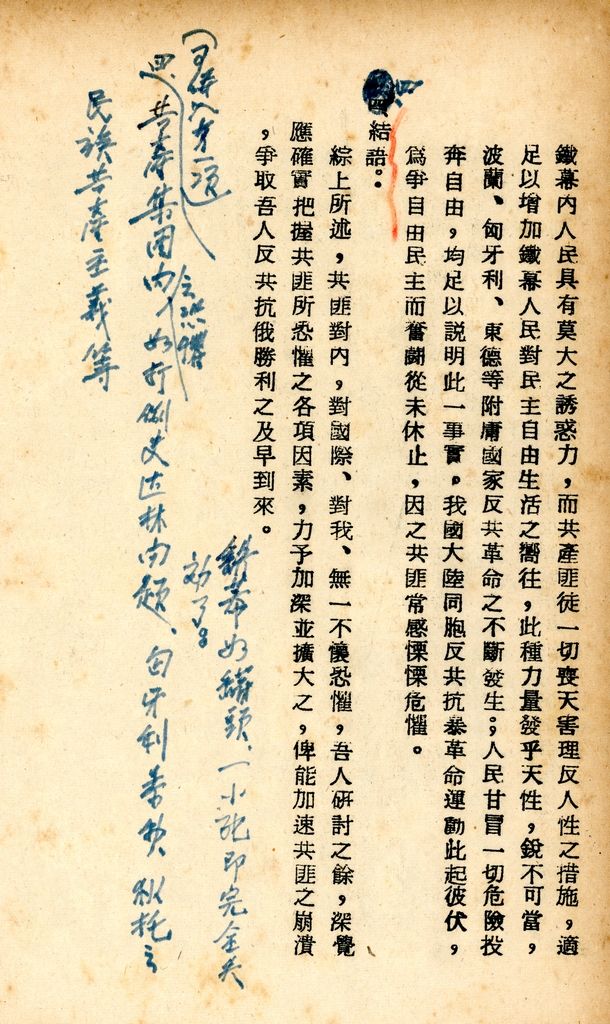 鐵幕內人民具有莫大之誘惑力，而共產匪徒一切喪天害理反人性之措施，適
足以增加鐵幕人民對民主自由生活之嚮往，此種力量發乎天性，銳不可當，
波蘭、匈牙利、東德等附庸國家反共革命之不斷發生；人民甘冒一切危險投
奔自由，均足以說明此一事實。我國大陸同胞反共抗暴革命運動此起彼伏，
爲爭自由民主而奮鬪從未休止，因之共匪常感慄慄危懼。
四
結語：
綜上所述，共匪對內，對國際、對我、無一不懷恐懼，吾人研討之餘，深覺
應確實把握共匪所恐懼之各項因素，力予加深並擴大之，俾能加速共匪之崩潰
，爭取吾人反共抗俄勝利之及早到來。
鐵幕如罐頭、一小孔即完全失
効了。
（可併入第一項）
四、共產集团內 如打倒史达林問題、匈牙利事件、狄托之
之恐懼
民族共產主義等